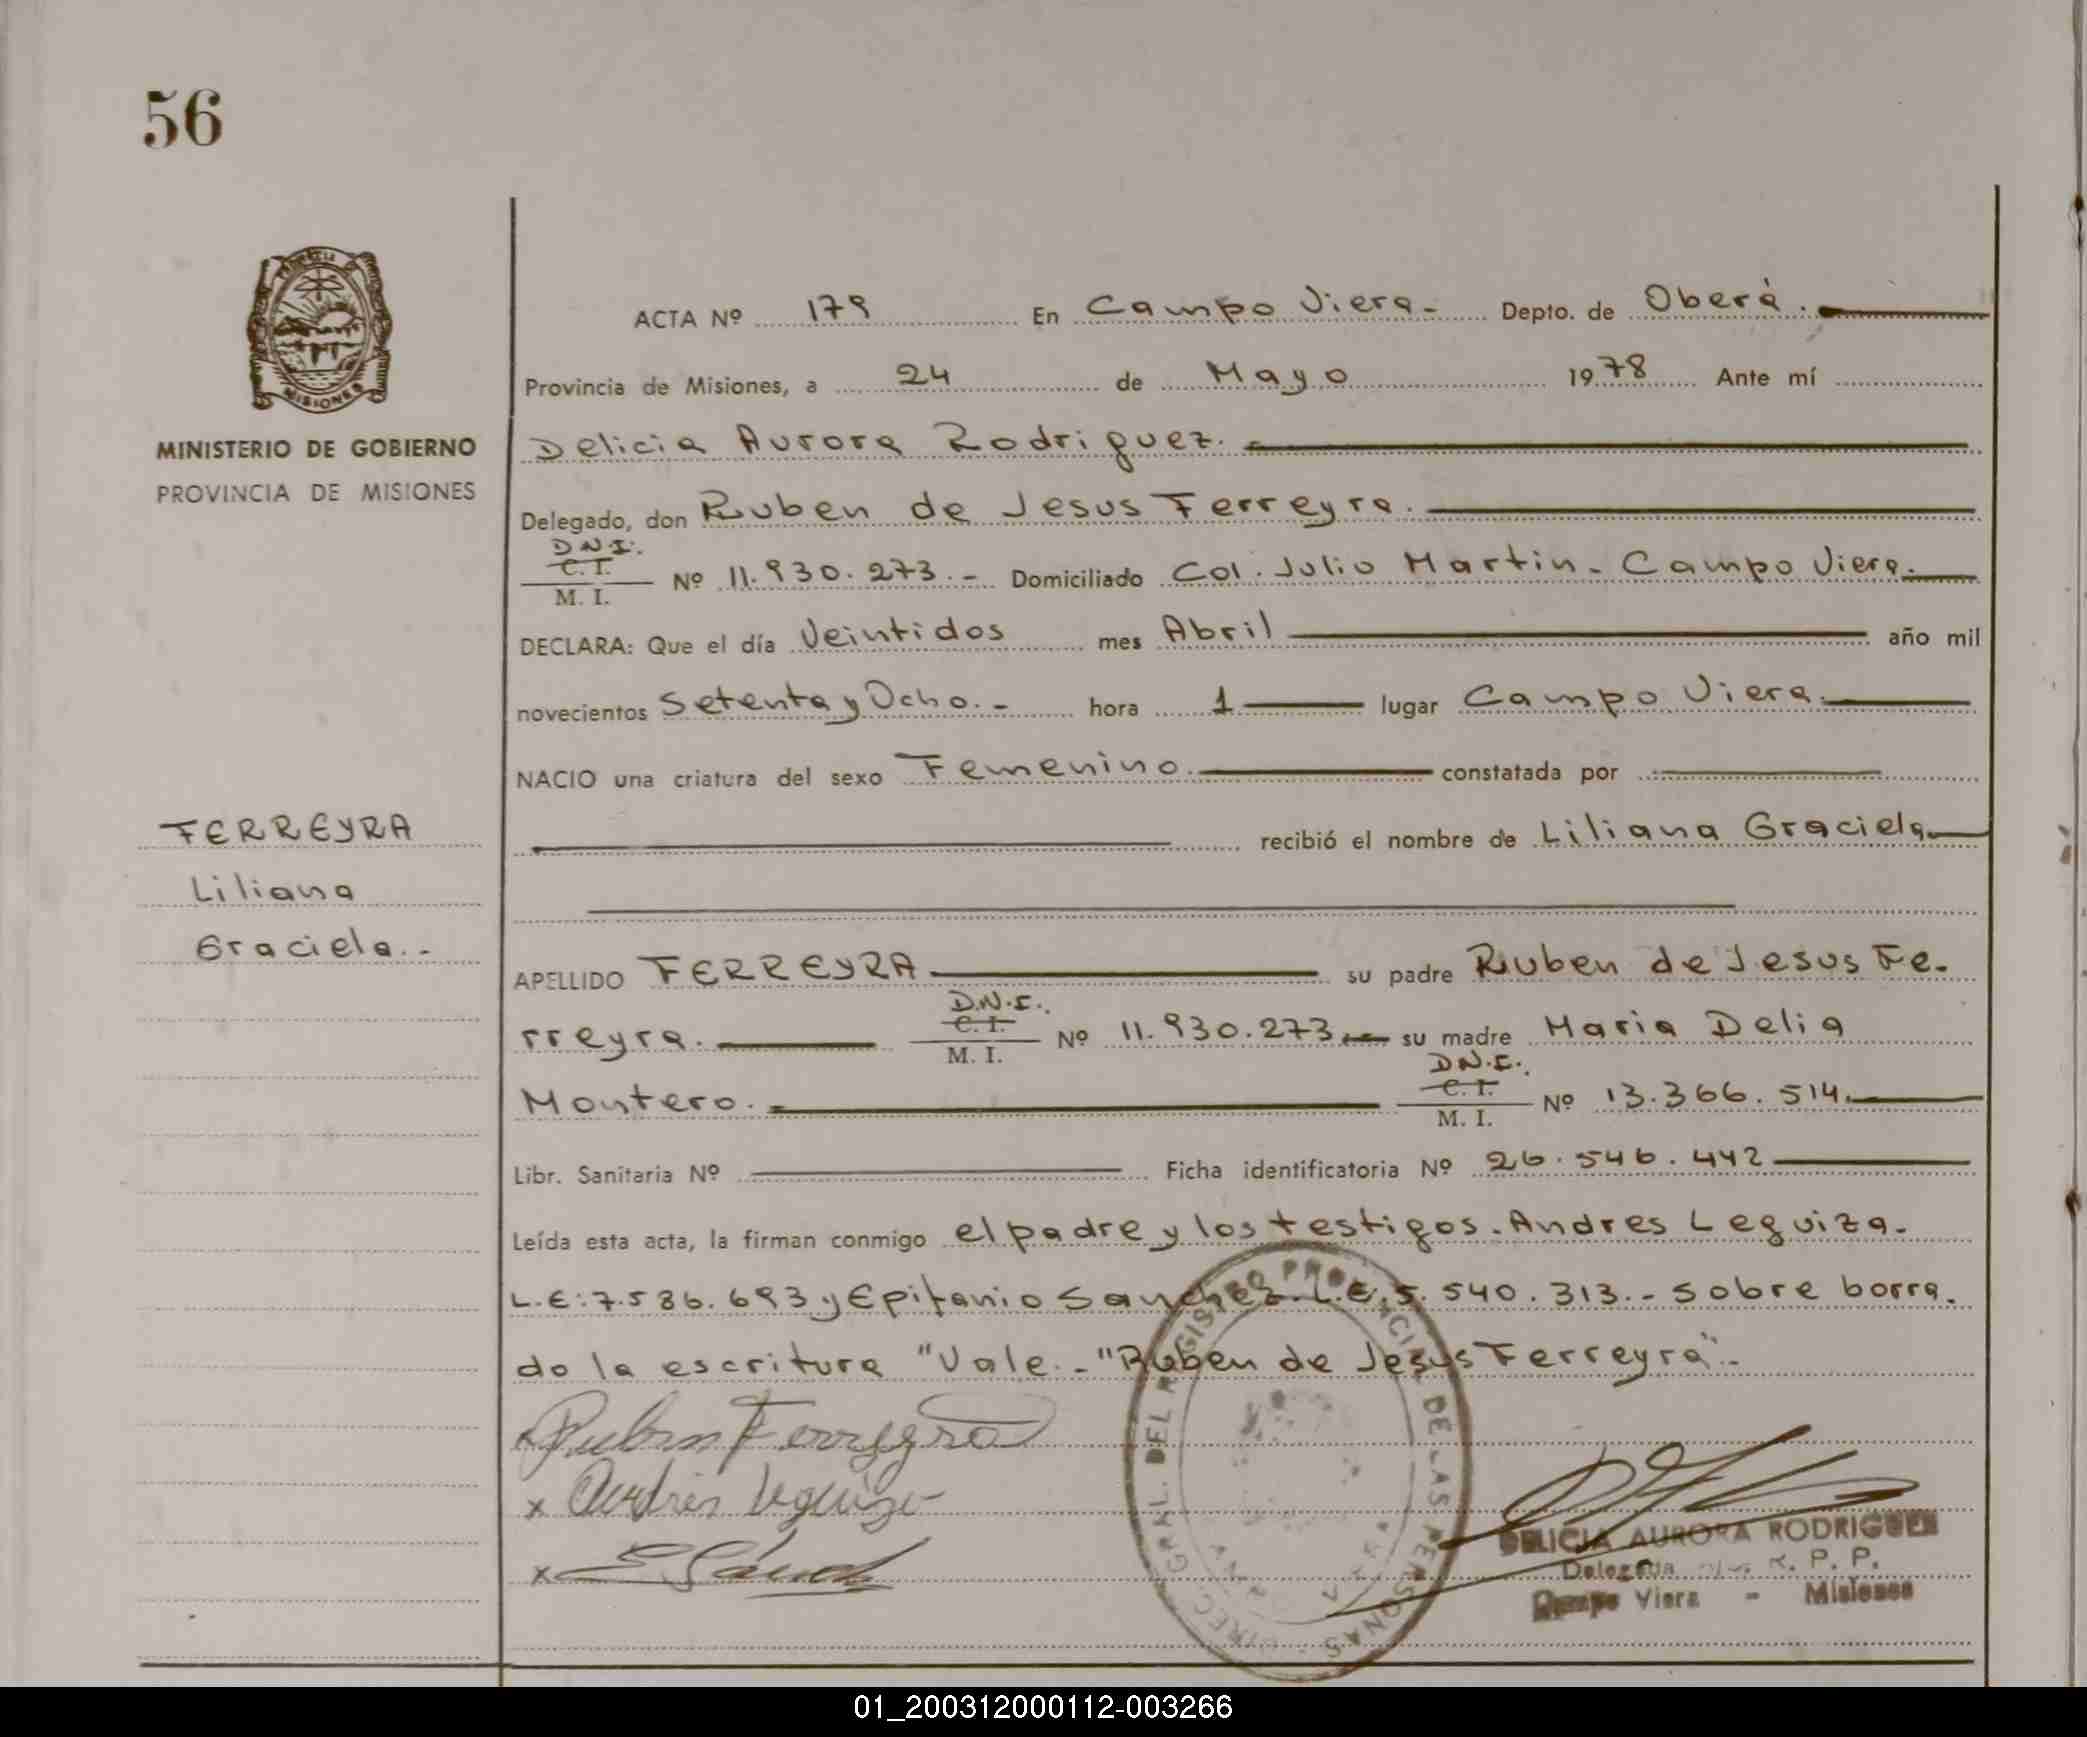 56
MISIONES
MINISTERIO DE GOBIERNO
PROVINCIA DE MISIONES
FERREYRA
Liliana
Graciela.-
ACTA Nº 179 En Campo Viera- Depto. de Oberá.
Provincia de Misiones, a 24 de Mayo 1978 Ante mí
Delicia Aurora Rodriguez.
Delegado, don Ruben de Jesus Ferreyra.
D.N.I.
C. I.
M. I. Nº 11.930.273.- Domiciliado Col. Julio Martin- Campo Viera.
DECLARA: Que el día Veintidos mes Abril año mil
novecientos Setenta y Ocho.- hora 1 lugar Campo Viera.
NACIO una criatura del sexo Femenino. constatada por
recibió el nombre de Liliana Graciela
APELLIDO FERREYRA su padre Ruben de Jesus Fe-
D.N.I.
C. I.
rreyra. M. I. Nº 11.930.273.- su madre Maria Delia
D.N.I.
C. I.
Montero. M. I. Nº 13.366.514.
Libr. Sanitaria Nº Ficha identificatoria Nº 26.546.442
Leída esta acta, la firman conmigo el padre y los testigos. Andres Leguiza.
L.E:7.586.693 y Epifanio Sanchez. L.E.5.540.313.- Sobre borra.
do la escritura "Vale.-"Ruben de Jesus Ferreyra".-
Ruben Ferreyra
x Andrés Leguiza
x E Sánch
DIREC. GRAL. DEL REGISTRO PROVINCIAL DE LAS PERSONAS
DELICIA AURORA RODRIGUEZ
Delegada R. P. P.
Campo Viera - Misiones
01_200312000112-003266